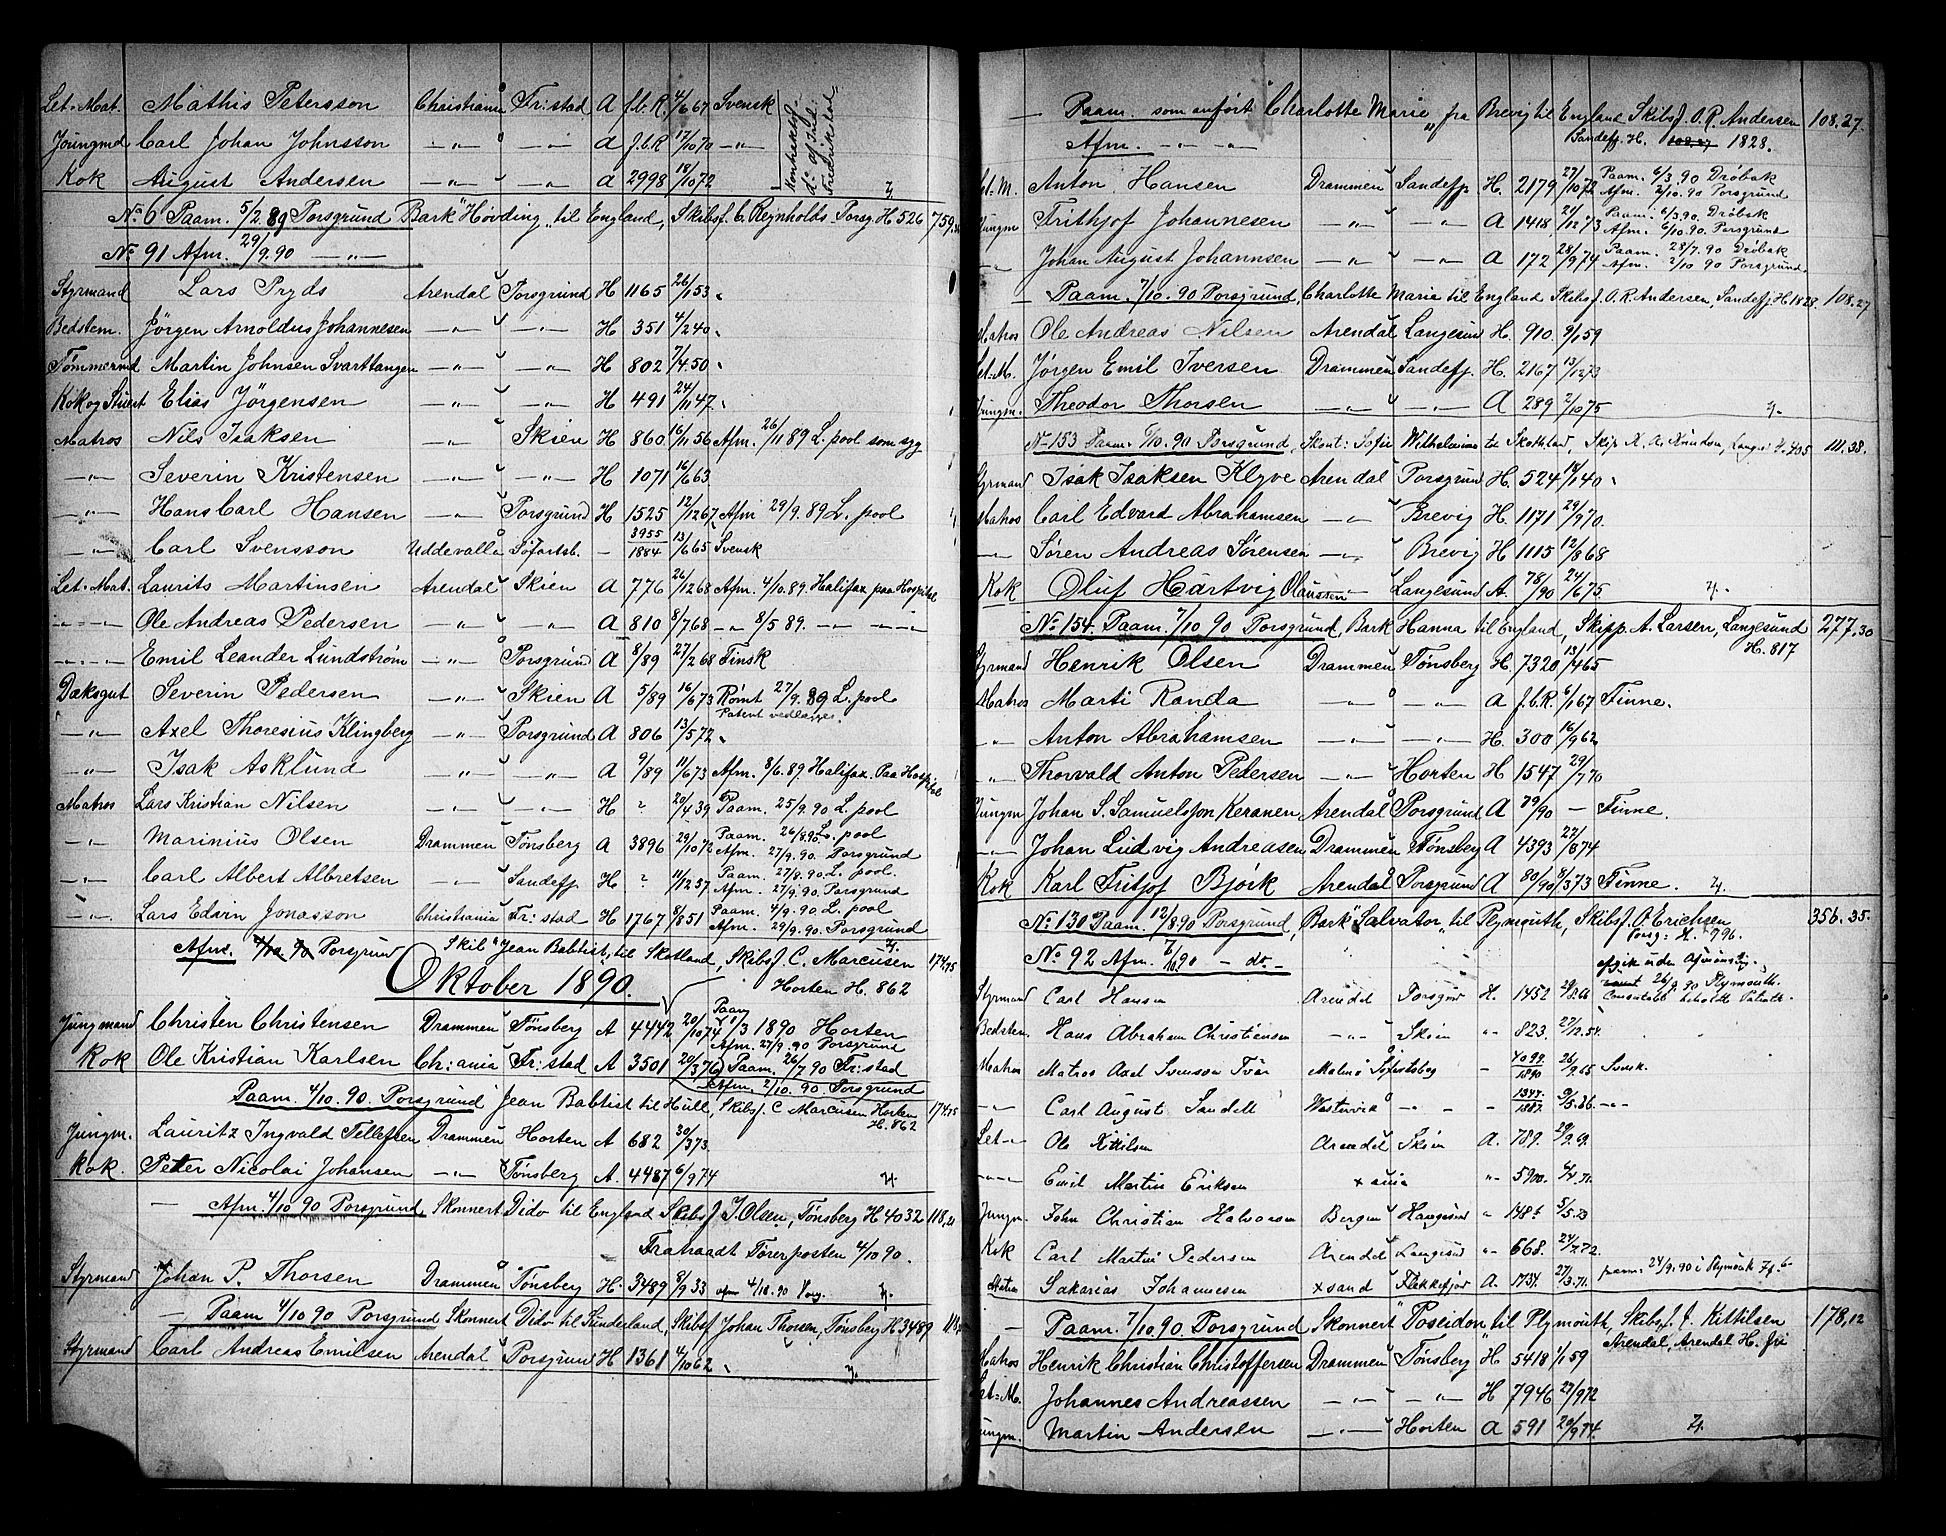 Let-Mat. Mathis Petersson Christiania Fr:stad A f.b.R. 4/6 67 Svensk
Jüngmd Carl Johan Johnsson —"— —"— A f.b.R 17/10 70 —"—
Kok August Andersen —"— —"— A 2998 18/10 72
No 6 Paam. 5/2 89 Porsgrund Bark "Hövding" til England, Skibsf. C. Reynholds Porsg H 526 759
No 91 Afm. 29/9.90 —"—
Styrmand Lars Pryds Arendal Porsgrund H 1165 26/1 53
Bedstem. Jörgen Arnoldus Johannesen —"— —"— H 351 4/2 40
Tömmermd Martin Johnsen Svarttangen —"— —"— H 802 7/4.50
Kok og Stuert Elias Jörgensen —"— —"— H 491 24/11 47
Matros Nils Isaksen —"— Skien H 860 16/11 56 Afm. 26/11 89 L.pool som syg
—"— Severin Kristensen —"— —"— H 1071 16/6 63
—"— Hans Carl Hansen —"— Porsgrund H 1525 12/12 67 Afm 29/9.89 L.pool
—"— Carl Svensson Uddevalla Söfartsb. - 3955/1884 13/6 65 Svensk
Let-Mat. Laurits Martinsen Arendal Skien A 776 26/12 68 Afm. 4/10.89. Halifax paa Hospital
—"— Ole Andreas Pedersen —"— —"— A 810 8/7 68 —"— 8/5 89. —"— —"—
—"— Emil Leander Lundström —"— Porsgrund A 8/89 27/2 68 Finsk
Dæksgut Severin Pedersen —"— Skien A 5/89 16/6 73 Römt 27/9.89 L.pool
Patent vedlagges.
—"— Axel Thoresius Klingberg —"— Porsgrund A 806 13/5 72
—"— Isak Asklund —"— —"— A 9/89 11/6 73 Afm. 8/6.89 Halifax. Paa Hospital
Matros Lars Kristian Nilsen —"— —"— H ? 20/4 39 Paam. 25/9.90 L.pool
—"— Marinius Olsen Drammen Tönsberg A 3896 29/10 72 Paam. 26/8.90 L.pool
Afm. 27/9.90. Porsgrund
—"— Carl Albert Albretsen —"— Sandeff. H ? 11/12 37 Paam. 27/8.90 L.pool.
Afm. 27/9.90. Porsgrund
—"— Lars Edvin Jonasson Christiania Fr:stad H 1767 8/8 51 Paam. 4/9.90 L.pool
Afm. 29/9.90. Porsgrund
Afm. 4/10.90 Porsgrund Skib "Jean Babtist" til Skotland, Skibsf. C. Marcusen 174.75
Oktober 1890. Horten H. 862
Jüngmand Christen Christensen Drammen Tönsberg A 4442 20/10 74 Paam 1/3 1890 Horten
Afm. 27/9.90 Porsgrund
Kok Ole Kristian Karlsen Ch:ania Fr:stad A 3501 20/3 76 Paam. 26/7 90 Fr:stad
Afm. 2/10.90 Porsgrund
Paam. 4/10.90. Porsgrund Jean Babtist til Hull, Skibsf. C Marcusen Horten 174.75
H. 862
Jüngm. Lauritz Ingvald Tellefsen Drammen Horten A 682 30/3 73
Kok. Peter Nicolai Johansen —"— Tönsberg A. 4487 6/9 74
— Afm. 4/10 90 Porsgrund, Skonnert Dido til England Skibsf. J. Olsen, Tönsberg H 4032 118.21
Fratraadt Förerposten 4/10 90.
Styrmand Johan P. Thorsen Drammen Tönsberg H. 3489 8/9 33 afm 4/10.90 Porsg.
— Paam 4/10 90 Porsgrund Skonnert Dido til Sunderland, Skibsf Johan Thorsen, Tönsberg H 3489
Styrmand Carl Andreas Emilsen Arendal Porsgrund H 1361 4/10 62
— Paam. som anfört "Charlotte Marie" fra Brevig til England Skibsf. O.R. Andersen 108.27.
Afm. —"— —"— Sandeff. H. 1828.
Let. M. Anton Hansen Drammen Sandeff H. 2179 27/10 72 Paam. 6/3.90 Dröbak
Afm. 2/10.90 Porsgrund
Jungm Frithjof Johannesen —"— —"— A 1418 21/12 73 Paam. 6/3.90. Dröbak
Afm. 6/10.90. Porsgrund
—"— Johan August Johannsen —"— —"— A 172 28/9 74 Paam. 28/7.90 Dröbak
Afm. 2/10 90 Porsgrund.
— Paam. 7/10.90 Porsgrund, Charlotte Marie til England Skibsf. O.R. Andersen, Sandeff H 1828. 108.27
Matros Ole Andreas Nilsen Arendal Langesund H. 910. 9/1 59
Let-M. Jörgen Emil Iversen Drammen Sandeff. H. 2167 13/12 73
Jungm. Theodor Thorsen —"— —"— A 289 2/10 75
No 153 Paam. 7/10.90 Porsgrund, Skont: Sofie Wilhelmine til Skotland, Skip. K. A. Knudsen, Langes. H. 405 111.38.
Styrmand Isak Isaksen Klyve Arendal Porsgrund H. 524 14/1 40
Matros Carl Edvard Abrahamsen —"— Brevig H. 1171 29/9 70.
—"— Sören Andreas Sörensen —"— Brevig H 1115 12/8 68
Kok Oluf Hartvig Olaussen —"— Langesund A. 78/90 24/6 75
No 154. Paam. 7/10 90 Porsgrund, Bark Hanna til England, Skipp. A. Larsen, Langesund 277.30
H. 817
Styrmand Henrik Olsen Drammen Tönsberg H. 7320 13/4 65
Matros Marti Randa —"— —"— A f.b.R. 6/1 67 Finne.
—"— Anton Abrahamsen —"— —"— H. 300 16/9 62
—"— Thorvald Anton Pedersen —"— Horten H 1547 29/7 70
Jungm Johan S. Samuelsson Keranen, Arendal Porsgrund A 79/90 — Finne.
—"— Johan Ludvig Andreasen Drammen Tönsberg A 4393 27/8 74
Kok Karl Fritjof Björk Arendal Porsgrund A 80/90 8/3 73 Finne.
No 130 Paam. 12/8.90 Porsgrund, Bark "Salvator" til Plymouth, Skibsf. O. Erichsen 356.35.
Porsg: H. 996.
No 92 Afm. 7/10 90 — do. —
Styrmand Carl Hansen Arendal Porsgrd H. 1452 26/9 90 Plymouth.
Bedstem. Hans Abraham Christensen —"— Skien " 823. 27/12.54.
Matros Matros Axel Svensson Tvär Malmö Söfartsbg - 4099/1890 26/9.65 Svensk.
—"— Carl August Sandell Westervik —"— - 1347/1887. 9/5.36. —"—
Let-"- Ole Kittilsen Arendal Skien A. 789. 29/9.69.
—"— Emil Martin Eriksen x ania " 5900. 6/4.71.
Jungm. John Christian Halvorsen Bergen Haugesund " 148 5/5.73
Kok Carl Martin Pedersen Arendal Langesund " 668. 24/7.72.
Matros Sakarias Johannesen x sand Flekkefjor A. 1734. 27/3.71. paam. 24/9.90 i Plymouth
— Paam. 7/10.90 Porsgrund Skonnert "Poseidon" til Plymouth, Skibsf. J. Kittilsen 178,12
Arendal, Arendal H. fri
Matros Henrik Christian Christoffersen Drammen Tönsberg H 5418 1/1 59
Let-M. Johannes Andreassen —"— —"— H 7946 27/9 72
Jungm. Martin Andersen —"— Horten A 591 20/9 74.